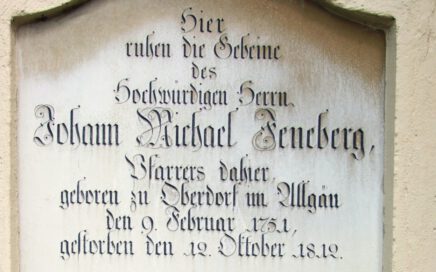 Hier
ruhen die Gebeine
des
Hochwürdigen Herrn,
Johann Michael Feneberg,
Pfarrers dahier,
geboren zu Oberdorf im Allgäu
den 9. Februar 1751,
gestorben den 12. Oktober 1812.